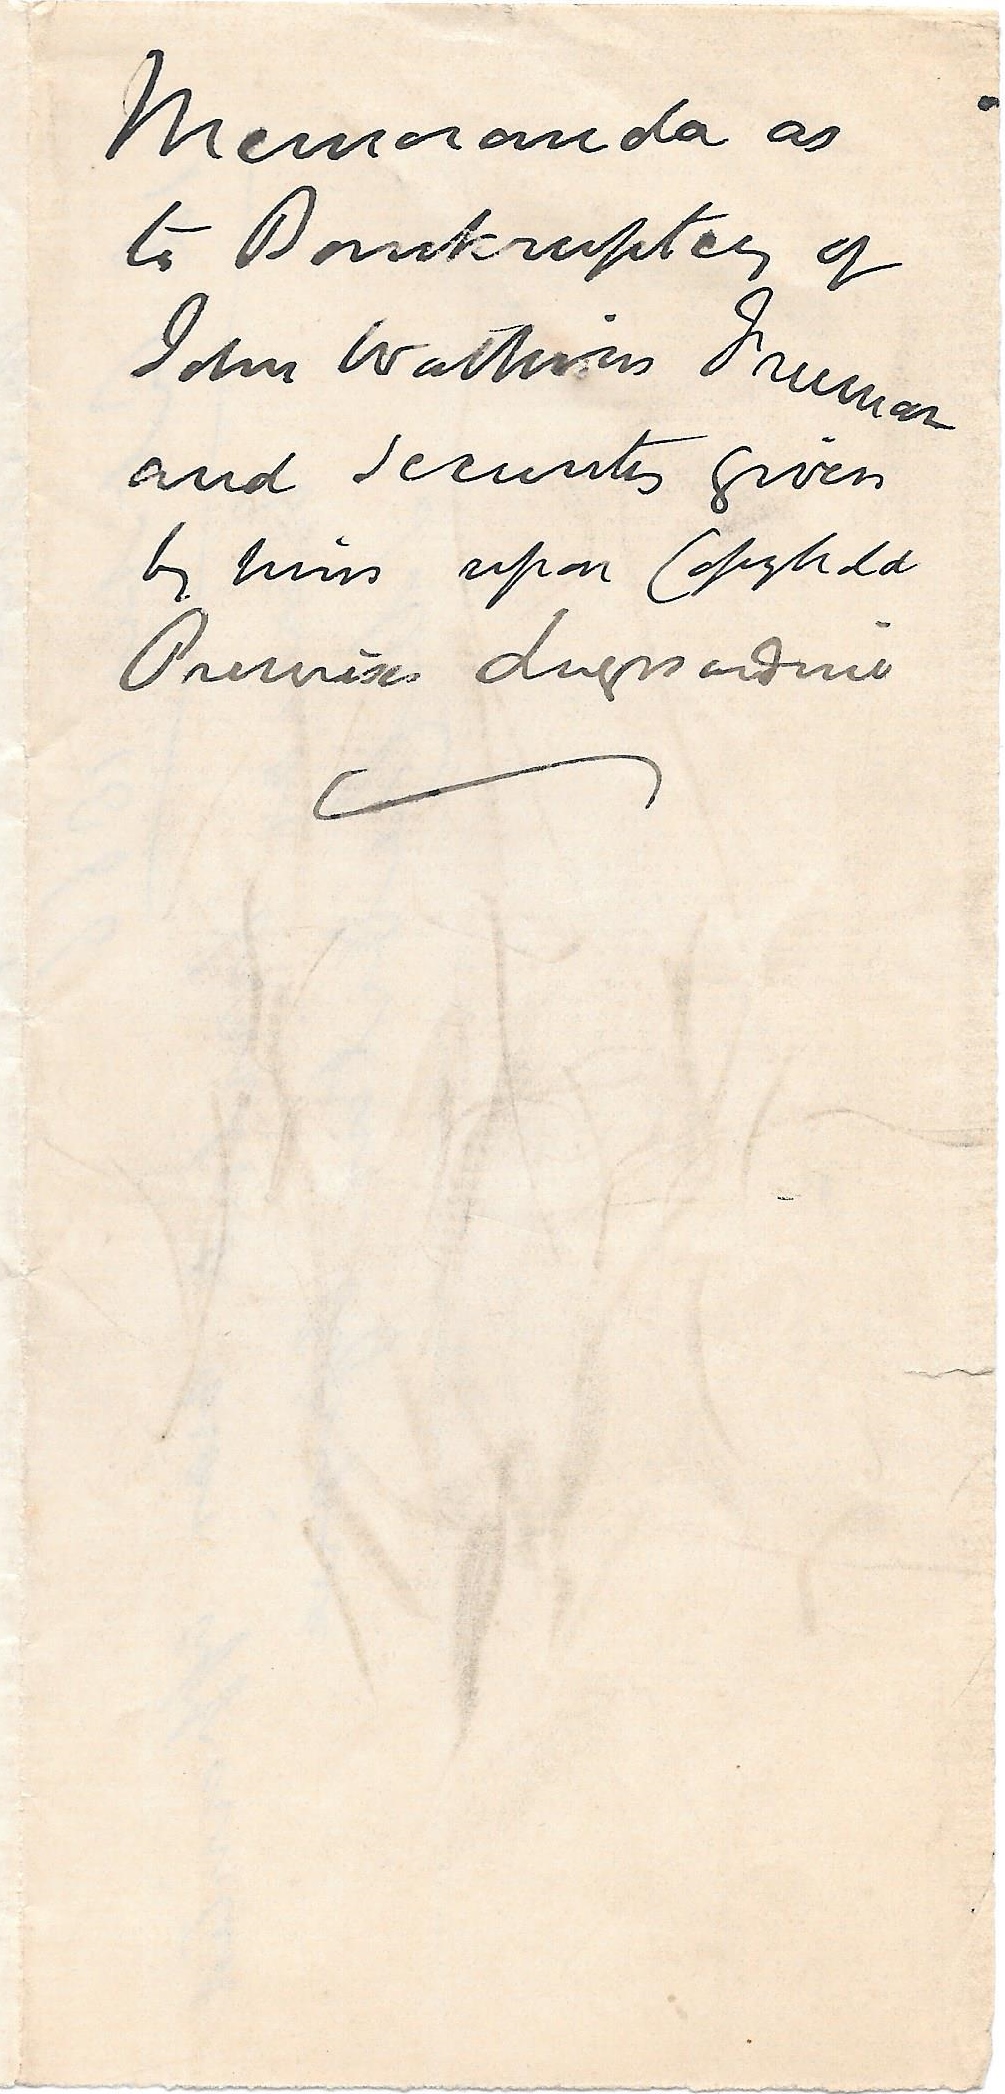 Memoranda as
to Bankruptcy of
John Watkins Freeman
and Securities given
by him upon Copyhold
Premises Lugwardine